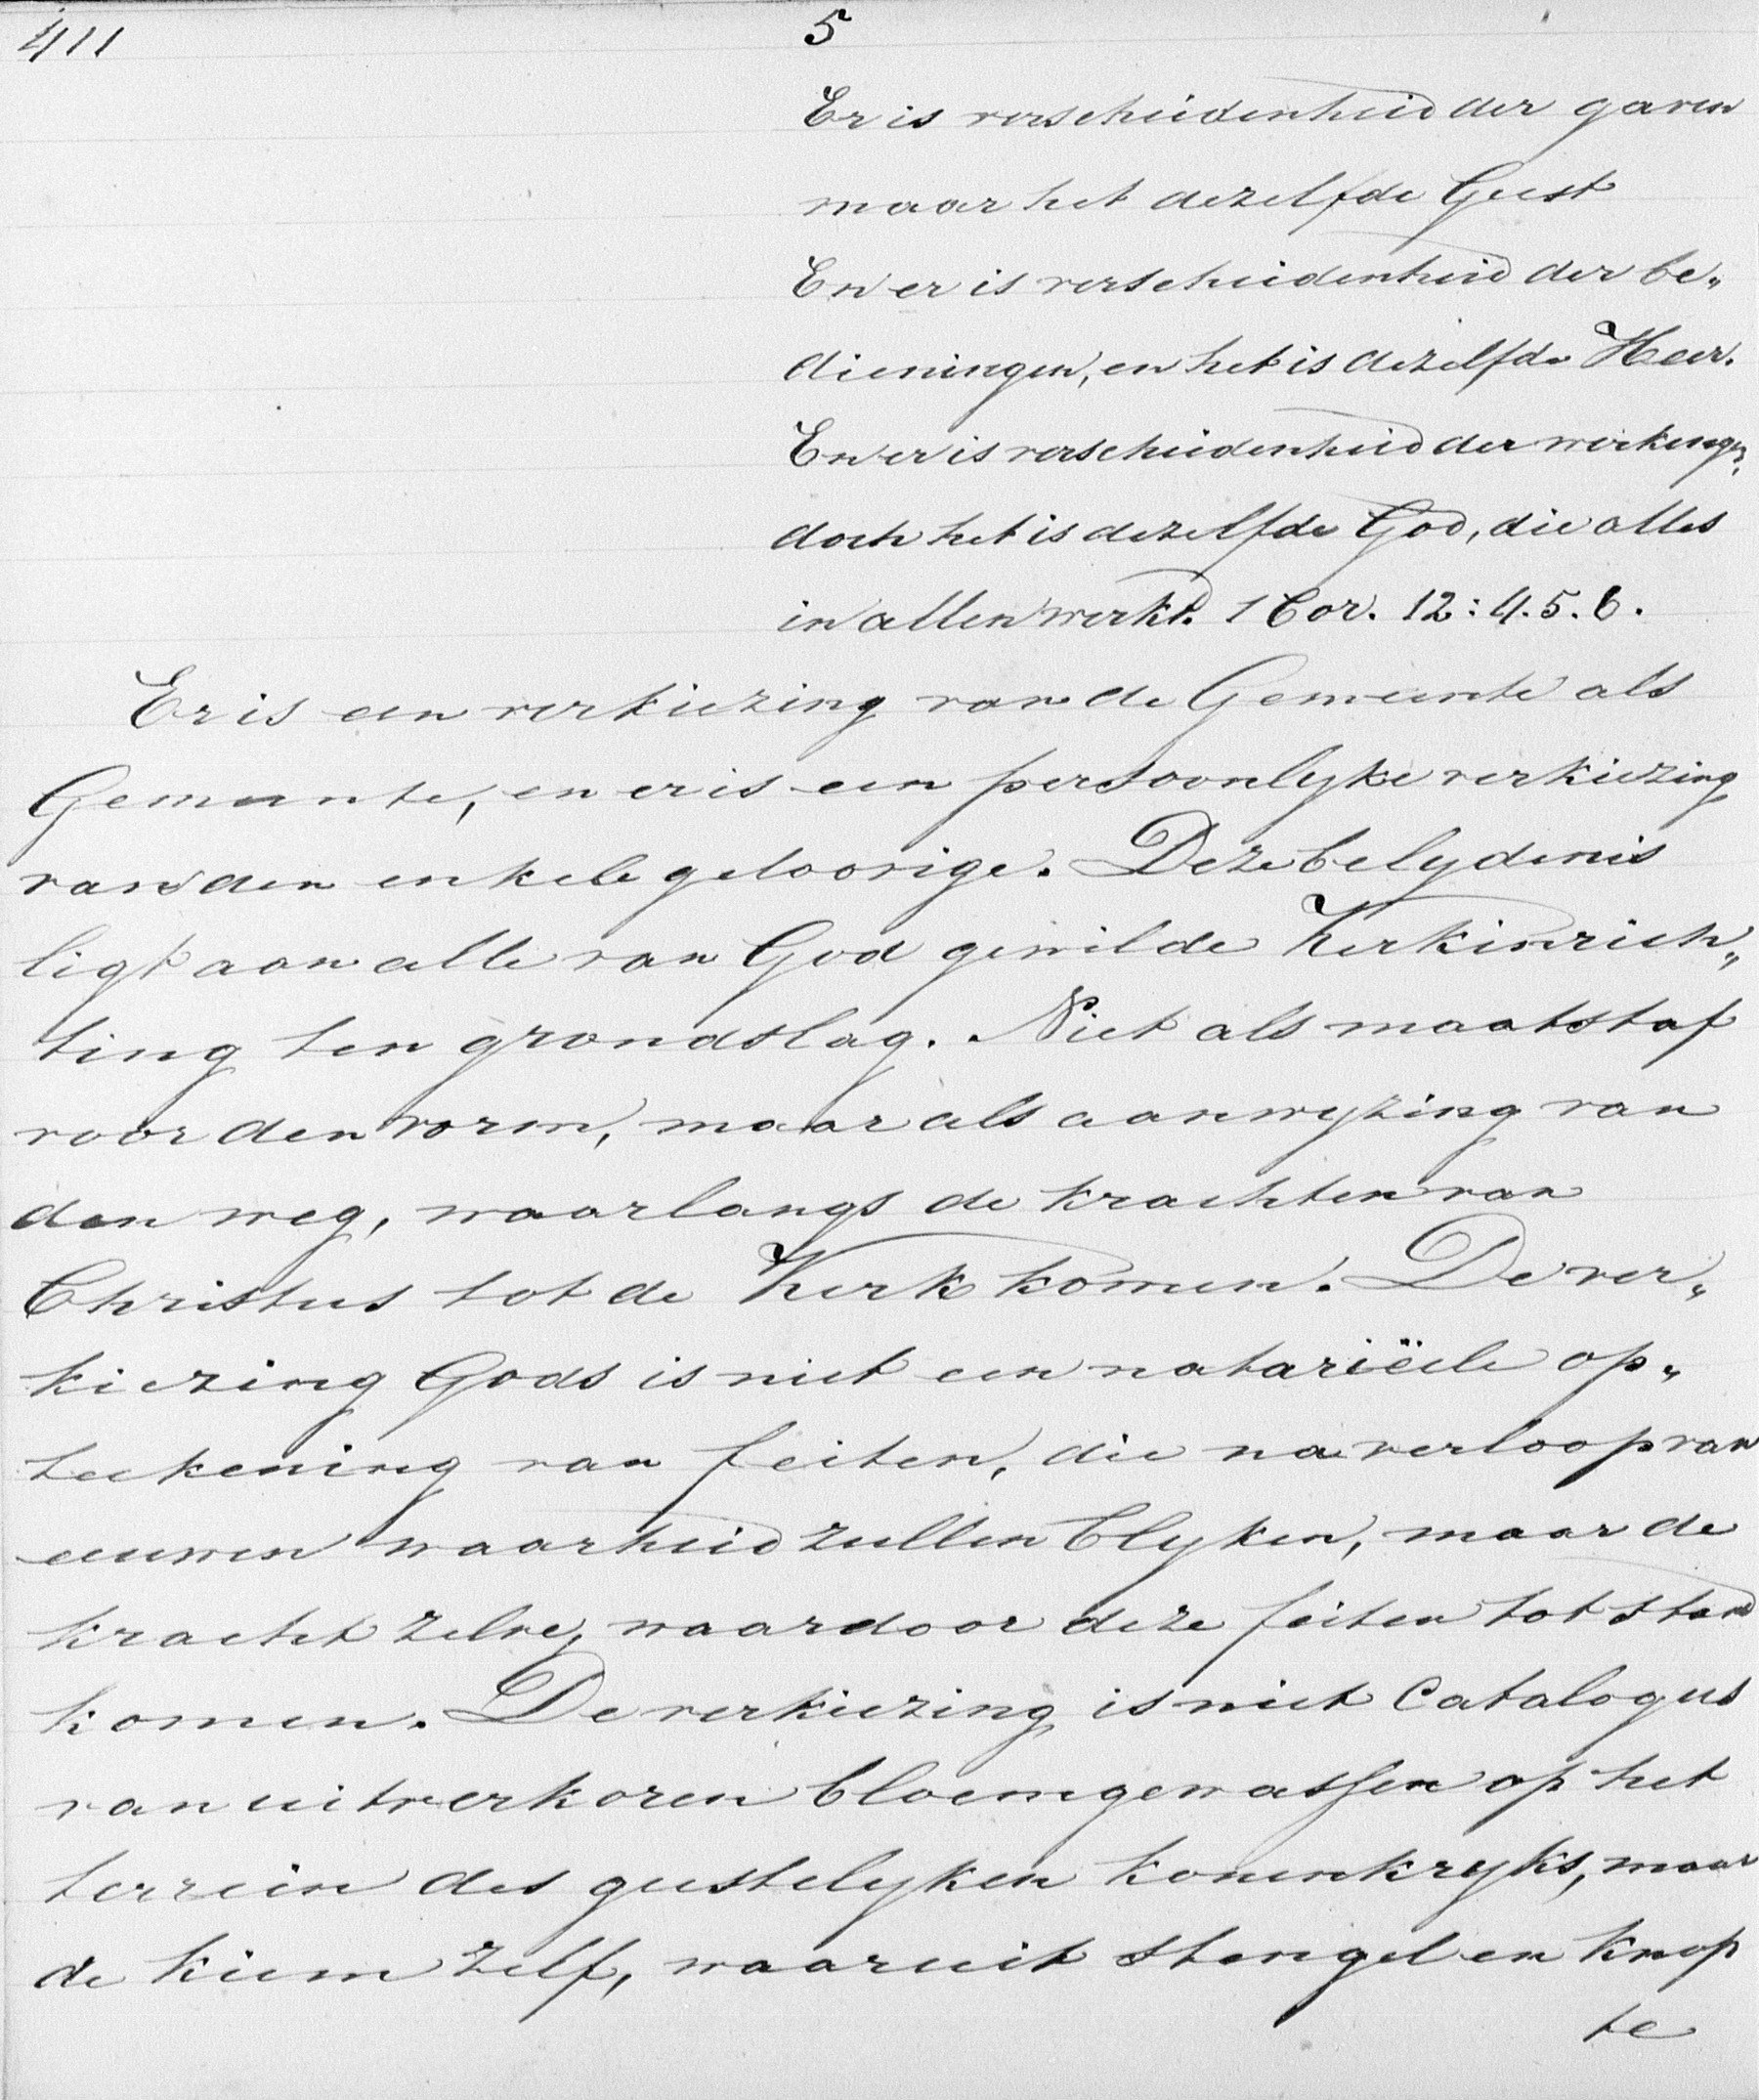 411
5
Er is verscheidenheid der gaven
maar het dezelfde Geest
En er is verscheidenheid der be„
dieningen, en het is dezelfde Heer.
En er is verscheidenheid der werkingen,
doch het is dezelfde God, die alles
in allen werkt. 1 Cor. 12:4.5.6.
Er is een verkiezing van de Gemeente als
Gemeente, en er is een persoonlyke verkiezing
van den enkele geloovige. Deze belydenis
ligt aan alle van God gewilde Kerkinrich„
ting ten grondslag. Niet als maatstaf
voor den vorm, maar als aanwyzing van
den weg, waarlangs de krachten van
Christus tot de Kerk komen. De ver„
kiezing Gods is niet een notariëele op„
teekening van feiten, die na verloop van
eeuwen waarheid zullen blyken, maar de
kracht zelve, waardoor deze feiten tot stand
komen. De verkiezing is niet Catalogus
van uitverkoren bloemgewassen op het
terrein des geestelyken koninkryks, maar
de kiem zelf, waaruit stengel en knop
te